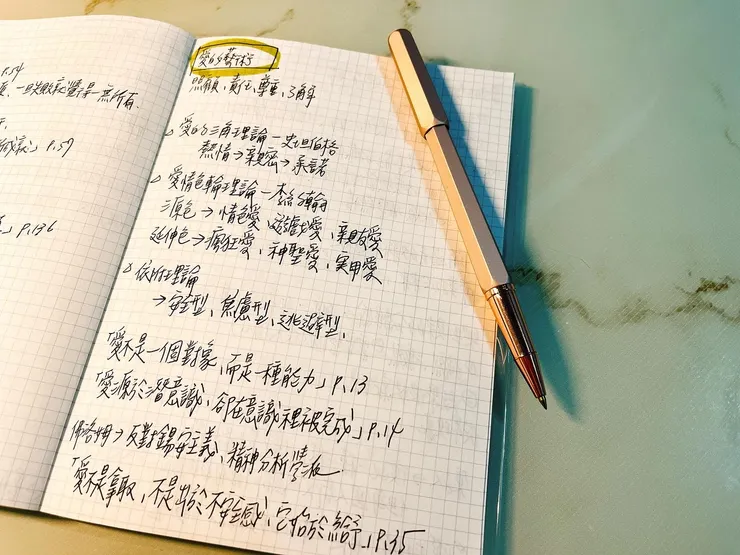 P.54
一旦失敗就覺得一無所有.
減衰」P.59
」P.136
愛的藝術
照顧、責任、尊重、了解
愛的三角理論－史坦伯格
熱情→親密→承諾
愛情色輪理論－李約翰
三原色→情色愛、遊戲愛、親友愛
延伸色→瘋狂愛、神聖愛、實用愛
依附理論
→安全型、焦慮型、逃避型、
「愛不是一個對象,而是一種能力」P.13
「愛源於潛意識,卻在意識裡被完成」P.14
佛洛姆→反對錫安主義、精神分析學派
「愛不是拿取,不是出於不安全感,它始於給予」P.35